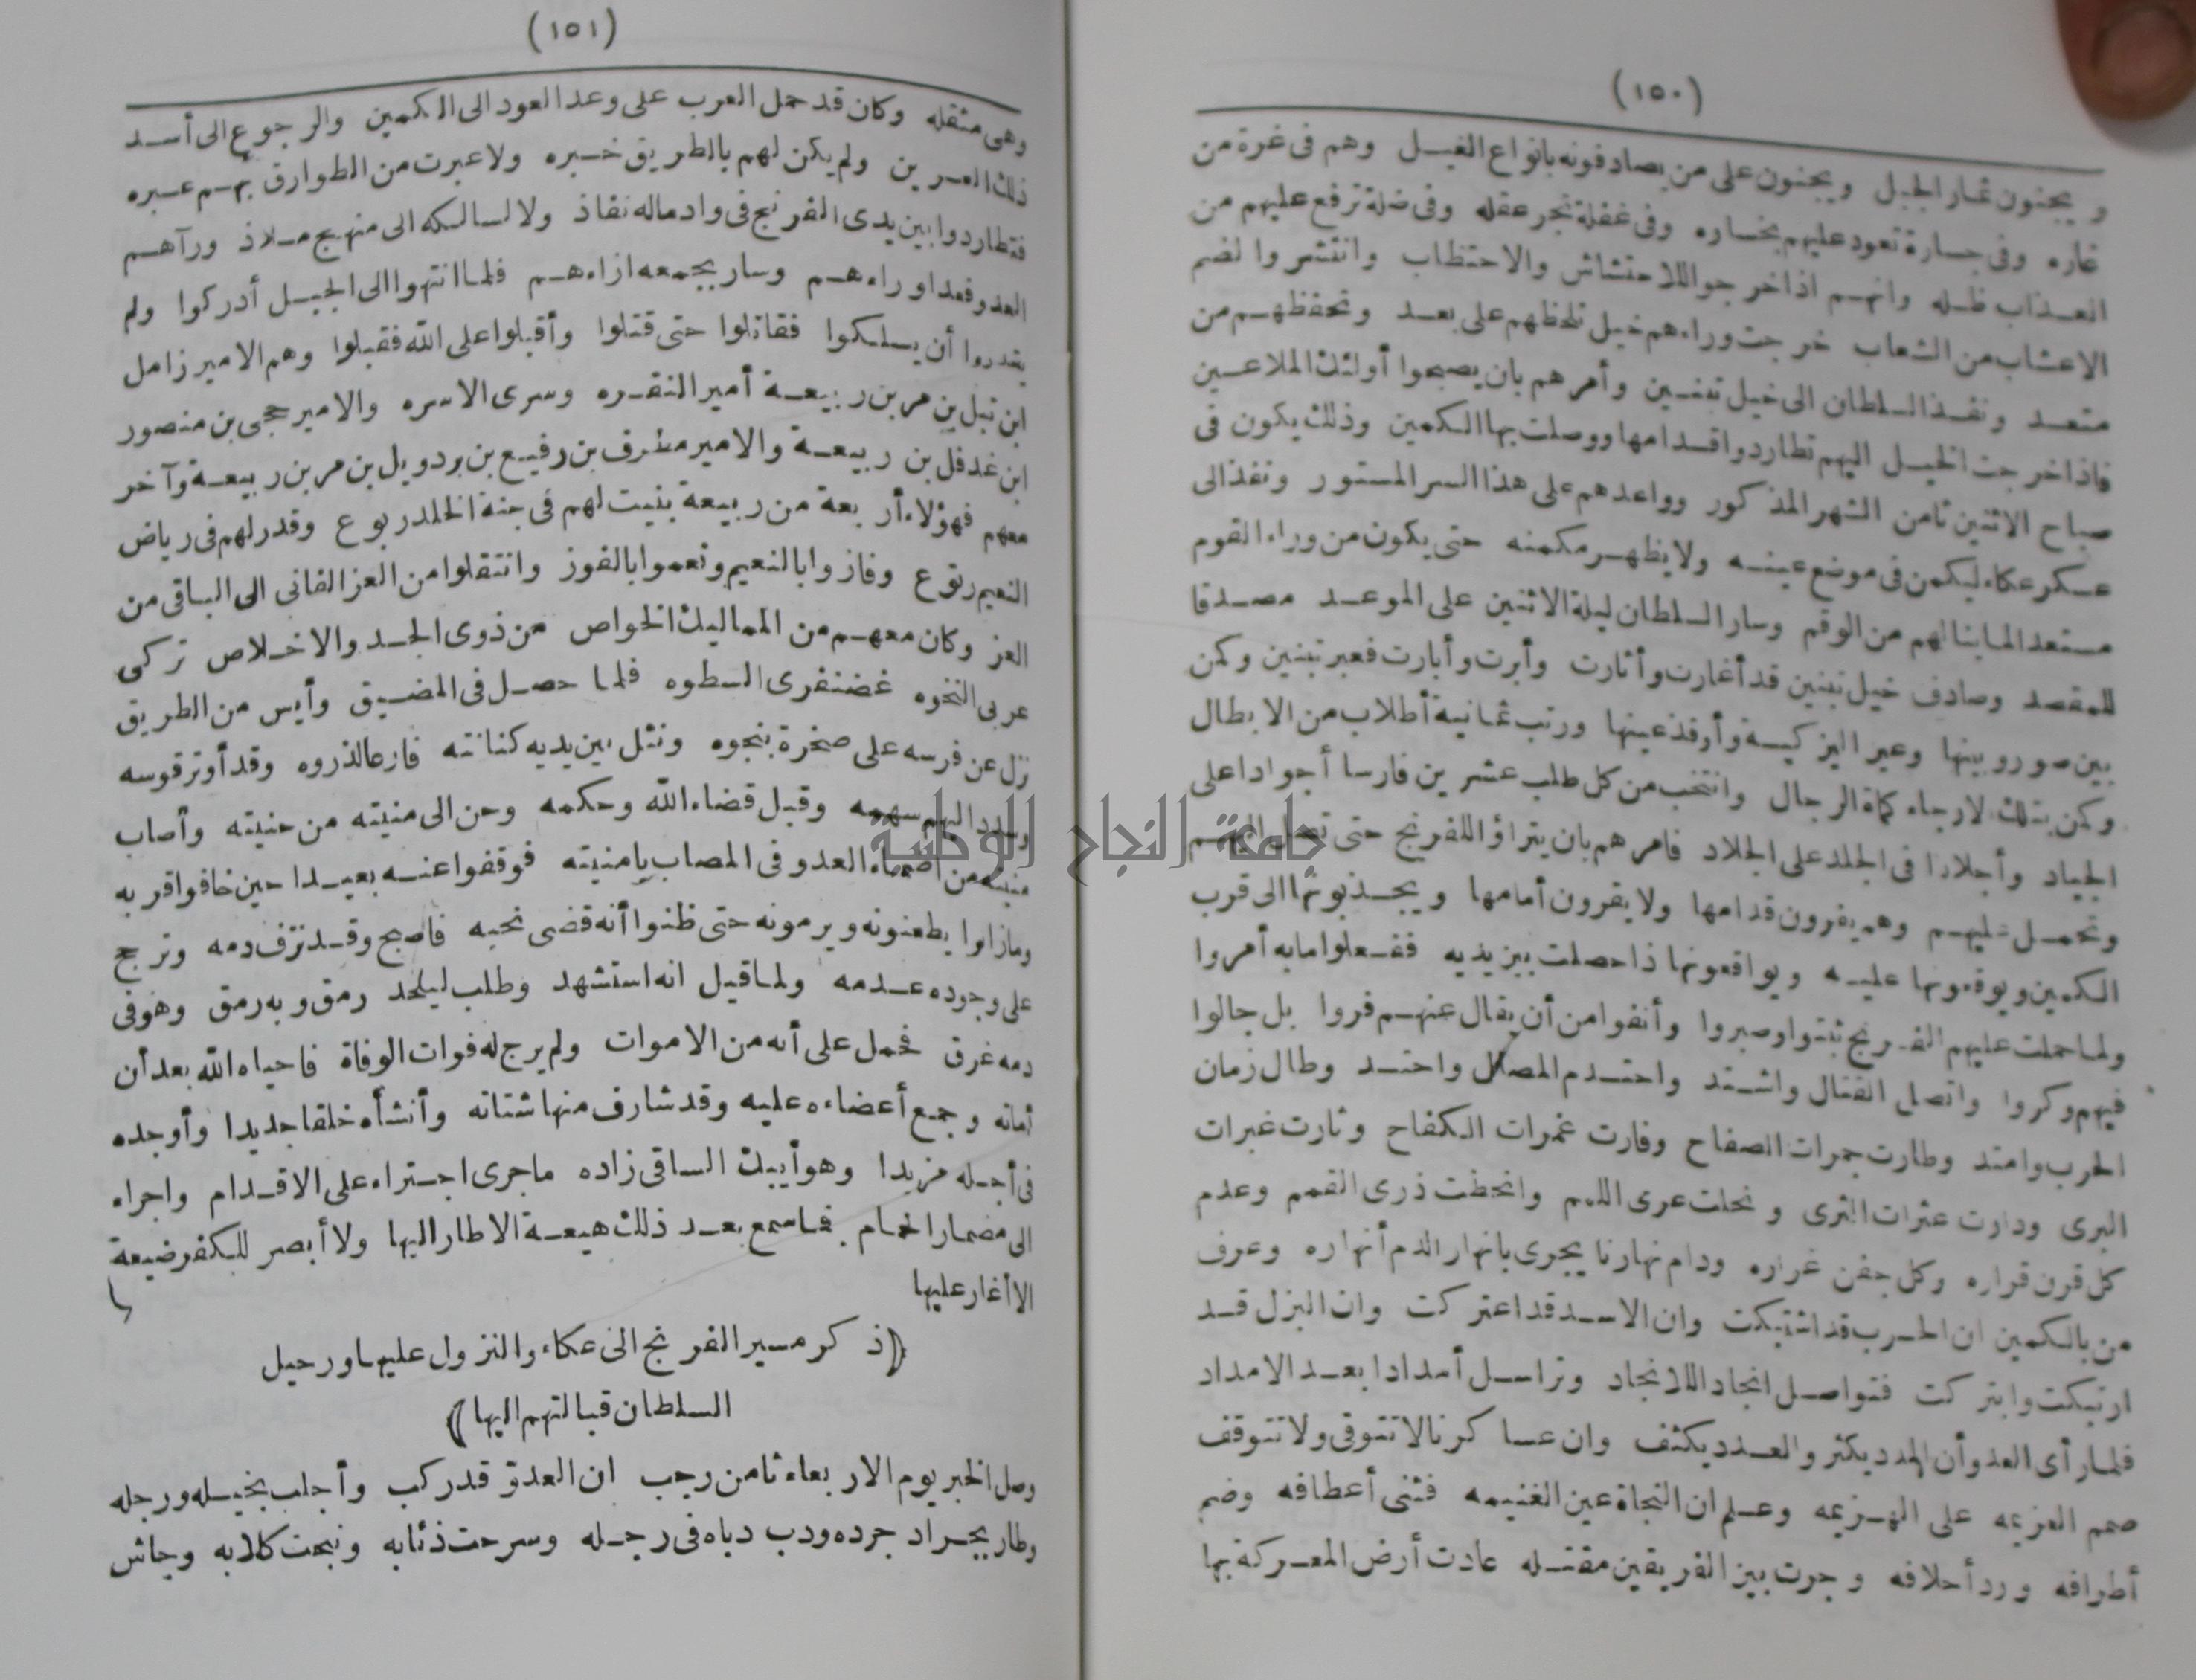 (١٥٠)
و يجنون ثمار الجبل ويجنون على من يصادفونه بانواع الغيـل وهم فى غرة من
غاره وفى جسارة تعود عليهم بخساره وفى غفلة تجر عقله وفى ضلة ترفع عليهم من
العـذاب ظـله وانهـم اذا خرجوا للاحتشاش والاحتطاب وانتشروا لضم
الاعشاب من الشعاب خرجت وراءهم خيل تلحظهم على بعـد وتحفظهـم من
متعـد ونفـذ السلطان الى خيل تبنـين وأمرهم بان يصبحوا أولئك الملاعـين
فاذا خرجت الخيـل اليهم تطاردوا قـدامها ووصلت بها الكمين وذلك يكون فى
صباح الاثنين ثامن الشهر المذكور وواعدهم على هذا السر المستور ونفذ الى
عسكر عكاء ليكمن فى موضع عينـه ولا يظهـر مكمنه حتى يكون من وراء القوم
مستعدا لما ينالهم من الوقم وسار السلطان ليلة الاثنين على الموعـد مصـدقا
للمقصد وصادف خيل تبنين قد أغارت وأثارت وأبرت وأبارت فعبر تبنين وكمن
بين صور وبينها وعبر اليزكيـة وأوفد عينها ورتب ثمانية أطلاب من الابطال
وكمن بتلك لارجاء كماة الرجال وانتخب من كل طلب عشرين فارسا أجوادا على
الجياد وأجلادا فى الجلد على الجلاد فامرهم بان يتراؤا للفرنج حتى تصل اليهـم
وتحمـل عليهـم وهم يفرون قدامها ولا يقرون أمامها ويجـذبونها الى قرب
الكمين ويوقعونها عليـه ويواقعونها اذا حصلت بين يديه ففـعلوا ما به أمروا
ولما حملت عليهم الفـرنج ثبتوا وصبروا وأنفوا من أن يقال عنهـم فروا بل جالوا
فيهم وكروا واتصل القتال واشـتد واحتـدم المصال واحتـد وطال زمان
الحرب وامتد وطارت جمرات الصفاح وفارت غمرات الكفاح وثارت غبرات
البرى ودارت عثرات الثرى ونحلت عرى اللمم وانحطت ذرى القمم وعدم
كل قرن قراره وكل جفن غراره ودام نهارنا يجرى بانهار الدم أنهاره وعرف
من بالكمين ان الحـرب قد اشتبكت وان الاسـد قد اعتركت وان البزل قـد
ارتبكت وابتركت فتواصـل انجادا للانجاد وتراسـل أمدادا بعـد الامداد
فلما رأى العدو أن المدد يكثر والعـدد يكثف وان عساكرنا لا تتوقى ولا تتوقف
صمم العزيمه على الهـزيمه وعـلم ان النجاة عين الغنيمه فثنى أعطافه وضم
أطرافه ورد أحلافه وجرت بين الفريقين مقتـله عادت أرض المعـركة بها
(١٥١)
وهى مثقله وكان قد حمل العرب على وعد العود الى الكمين والرجوع الى أسـد
ذلك العـرين ولم يكن لهم بالطريق خـبره ولا عبرت من الطوارق بهـم عـبره
فتطاردوا بين يدى الفرنج فى واد ماله نفاذ ولا لسالكه الى منهج مـلاذ ورآهـم
العدو فعدا وراءهـم وسار بجمعه ازاءهـم فلما انتهوا الى الجبـل أدركوا ولم
يقدروا أن يسلكوا فقاتلوا حتى قتلوا وأقبلوا على الله فقبلوا وهم الامير زامل
ابن تبل بن مر بن ربيعـة أمير النقـره وسرى الاسره والامير حجى بن منصور
ابن غدفل بن ربيعـة والامير مطرف بن رفيـع بن بردويل بن مر بن ربيعـة وآخر
معهم فهؤلاء أربعة من ربيعة بنيت لهم فى جنة الخلد ربوع وقدر لهم فى رياض
النعيم رتوع وفازوا بالنعيم ونعموا بالفوز وانتقلوا من العز الفانى الى الباقى من
العز وكان معهـم من المماليك الخواص من ذوى الجـد والاخـلاص تركى
عربى النخوه غضنفرى السطوه فلما حصـل فى المضـيق وأيس من الطريق
نزل عن فرسه على صخرة بنجوه ونثل بين يديه كنانته فازعا لذروه وقد أوتر قوسه
وسدد اليهم سهمه وقبل قضاء الله وحكمه وحن الى منيته من حنيته وأصاب
منيته من اصماء العدو فى المصاب بامنيته فوقفوا عنـه بعيـدا حين خافوا قربه
وما زالوا يطعنونه ويرمونه حتى ظنوا أنه قضى نحبه فاصبح وقـد نزف دمه وترجح
على وجوده عـدمه ولما قيل انه استشهد وطلب ليلحد رمق وبه رمق وهو فى
دمه غرق فحمل على أنه من الاموات ولم يرج له فوات الوفاة فاحياه الله بعد أن
أماته وجمع أعضاءه عليه وقد شارف منها شتاته وأنشأه خلقا جديدا وأوجده
فى أجـله مزيدا وهو أيبك الساقى زاده ما جرى اجـتراء على الاقـدام واجراء
الى مضمار الحمام فما سمع بعـد ذلك هيعـة الا طار اليها ولا أبصر للكفر ضيعة
الا أغار عليها
(ذكر مسير الفرنج الى عكاء والنزول عليها ورحيل
السلطان قبالتهم اليها)
وصل الخبر يوم الاربعاء ثامن رجب ان العدوّ قد ركب وأجلب بخيـله ورجله
وطار بجـراد جرده ودب دباه فى رجـله وسرحت ذئابه ونبحت كلابه وجاش
جامعة النجاح الوطنية